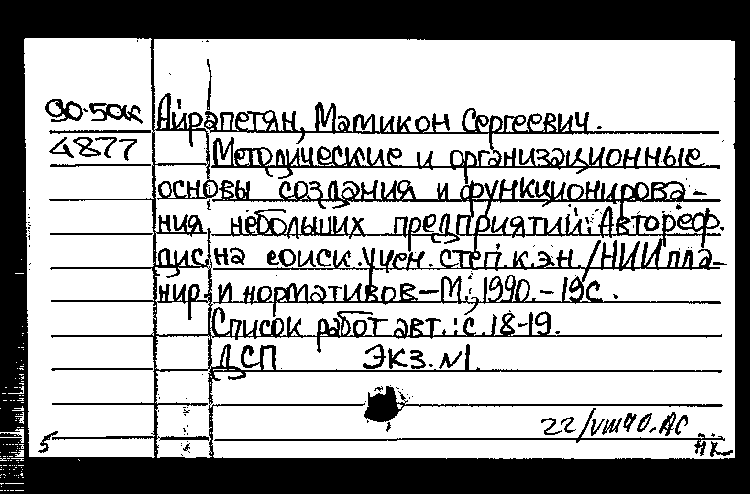 90-50к Айрапетян, Мамикон Сергеевич.
4877 Методические и организационные
основы создания и функционирова-
ния небольших предприятий: Автореф.
дис. на соиск. учен. степ. к.э.н. /НИИ пла-
нир. и нормативов – М., 1990. – 19с.
Список работ авт.: с. 18-19.
ДСП Экз. №1.
22/VIII 90. АС
5